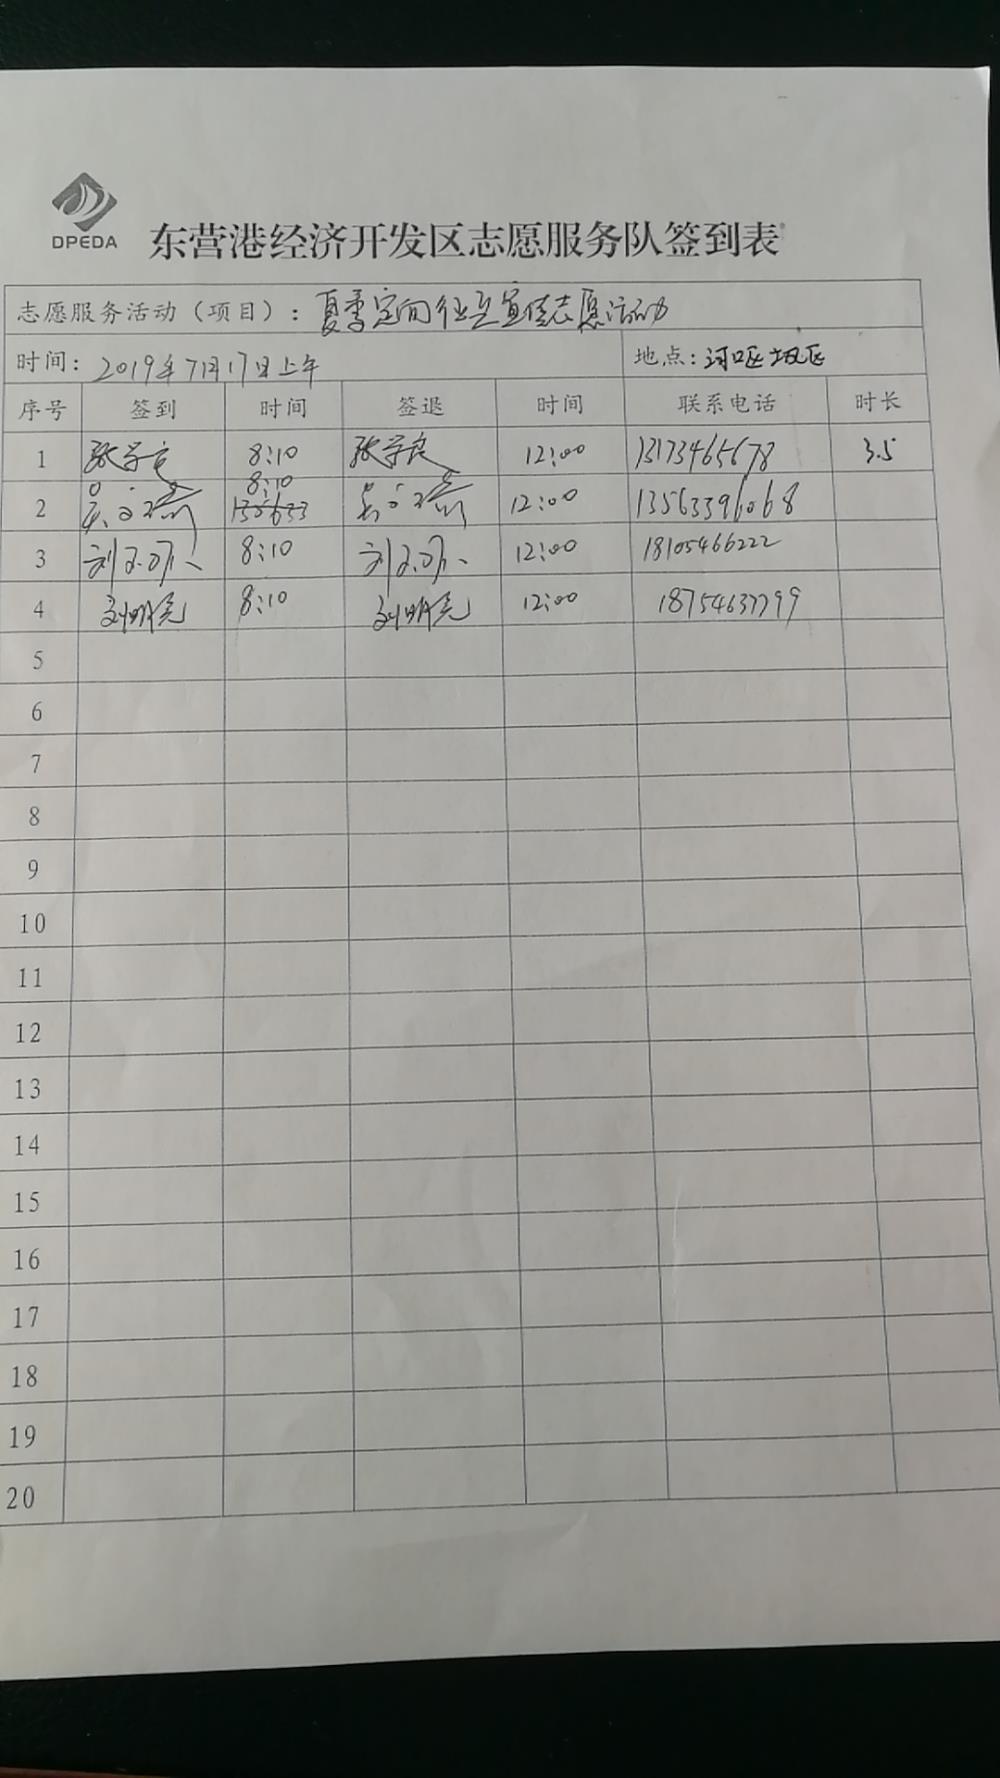 DPEDA
东营港经济开发区志愿服务队签到表
志愿服务活动（项目）：夏季定向征兵宣传志愿活动
时间：2019年7月17日上午 地点：河口区
序号 签到 时间 签退 时间 联系电话 时长
1 8:10 12:00 13173465678 3.5
8:10
2 135633 12:00 13563396068
3 8:10 12:00 18105466222
4 刘明亮 8:10 刘明亮 12:00 18754637799
5
6
7
8
9
10
11
12
13
14
15
16
17
18
19
20